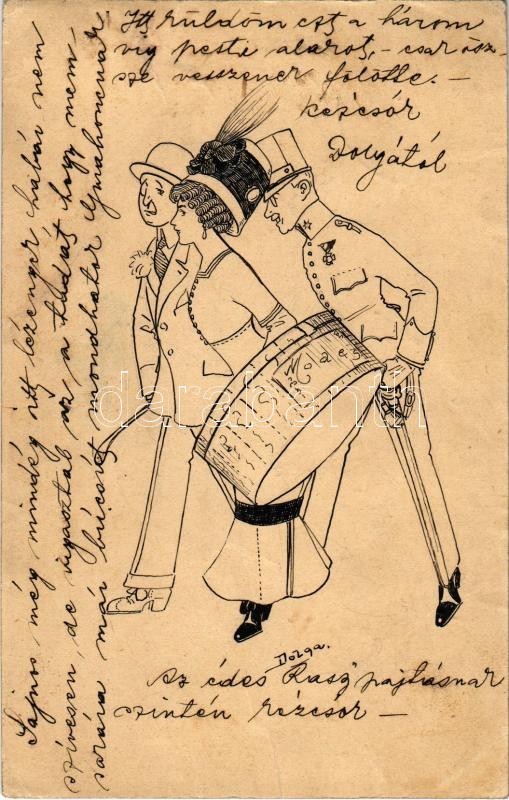 Itt küldöm ezt a három
víg pesti alakot, - csak ösz-
sze vesszenek fölötte. -
kézcsók
Dolgától
Sajnos még mindég itt lézengek habár nem
szívesen, de vigasztal az a tudat hogy nem-
sokára már búcsút mondhatok
Dolga.
Az édes "Rasz" pajtásnak
szintén kézcsók -
darabanth